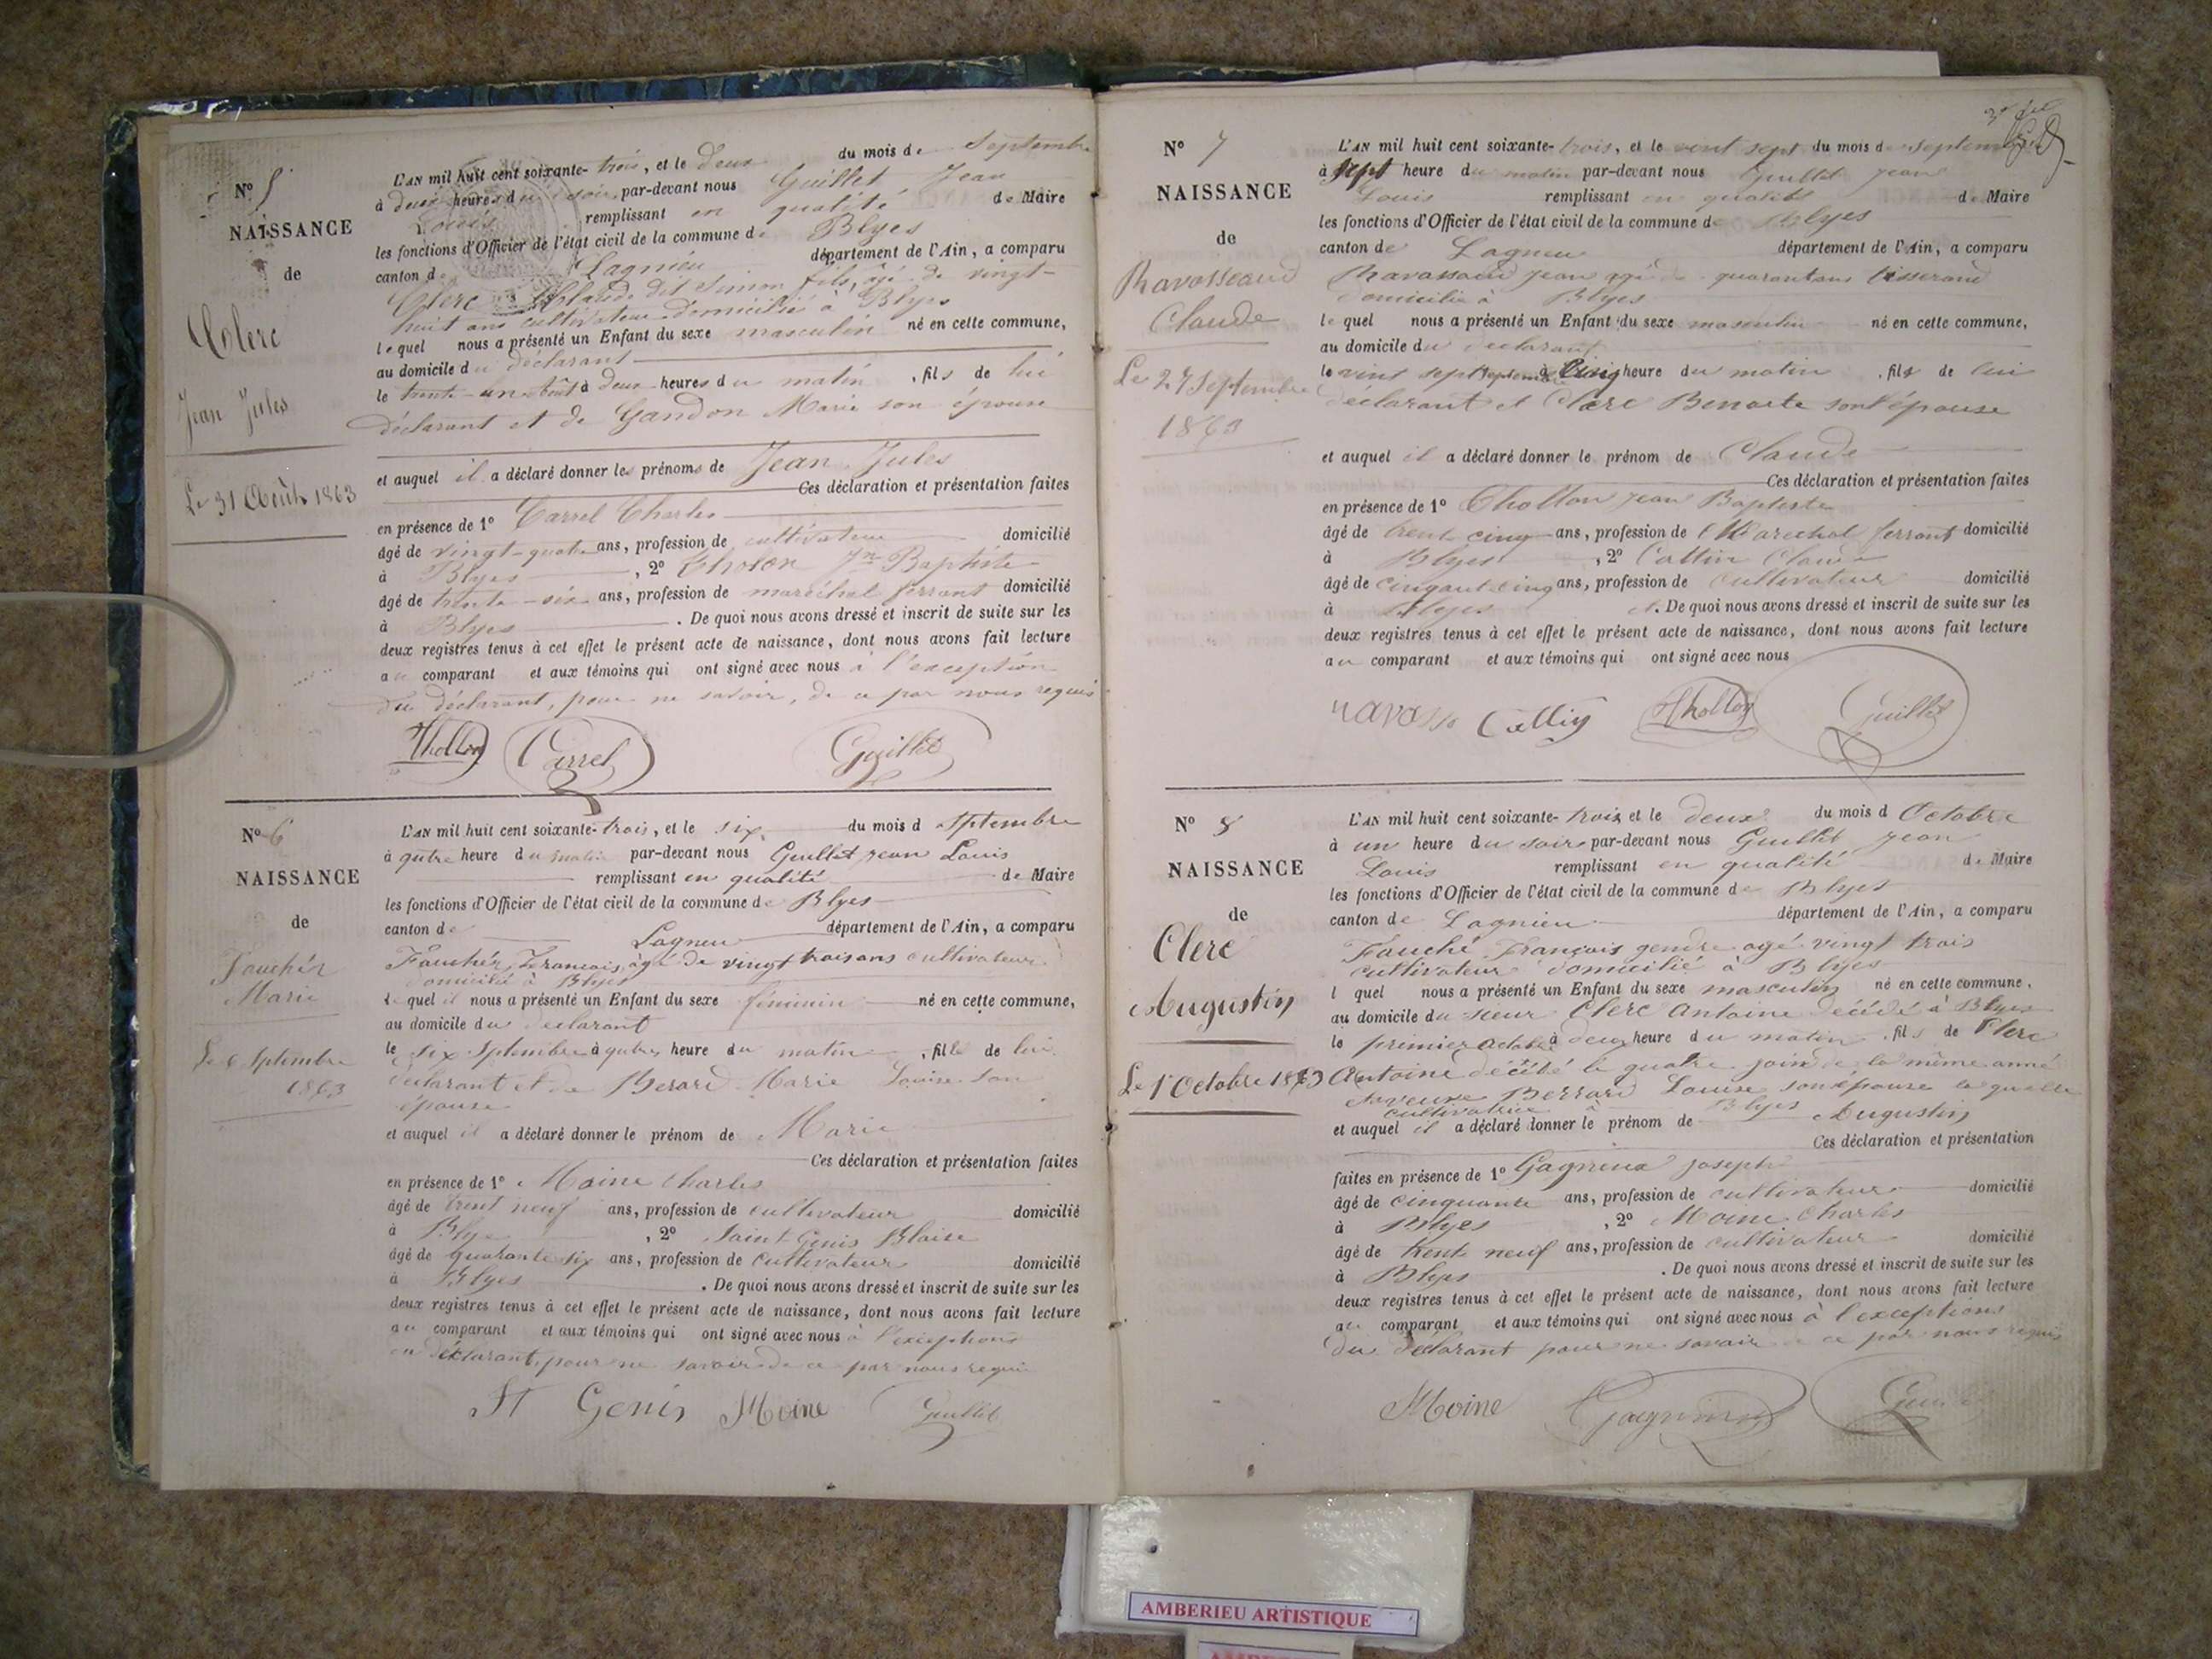 N° 5
NAISSANCE
de
Clerc
Jean Jules
Le 31 Août 1863
L'AN mil huit cent soixante-trois, et le deux du mois de Septembre
à deux heures du soir, par-devant nous Guillet Jean
Louis remplissant en qualité de Maire
les fonctions d'Officier de l'état civil de la commune de Blyes
canton de Lagnieu département de l'Ain, a comparu
Clerc Claude dit Simon fils, âgé de vingt-
huit ans cultivateur domicilié à Blyes
lequel nous a présenté un Enfant du sexe masculin né en cette commune,
au domicile du déclarant
le trente-un août à deux heures du matin, fils de lui
déclarant et de Gandon Marie son épouse
et auquel il a déclaré donner les prénoms de Jean Jules
Ces déclaration et présentation faites
en présence de 1° Carrel Charles
âgé de vingt-quatre ans, profession de cultivateur domicilié
à Blyes, 2° Tholon Jn Baptiste
âgé de trente-six ans, profession de maréchal ferrant domicilié
à Blyes. De quoi nous avons dressé et inscrit de suite sur les
deux registres tenus à cet effet le présent acte de naissance, dont nous avons fait lecture
au comparant et aux témoins qui ont signé avec nous à l'exception
du déclarant, pour ne savoir, de ce par nous requis
Thollon Carrel Guillet
N° 6
NAISSANCE
de
Fauchér
Marie
Le 6 Sptembre
1863
L'AN mil huit cent soixante-trois, et le six du mois d Sptembre
à qutre heure du matin par-devant nous Guillet jean Louis
remplissant en qualité de Maire
les fonctions d'Officier de l'état civil de la commune de Blyes
canton de Lagneu département de l'Ain, a comparu
Fauchér, Francois, âgé de vingt trois ans cultivateur
domicilié à Blyes
lequel il nous a présenté un Enfant du sexe féminin né en cette commune,
au domicile du declarant
le six Sptembre à qutre heure du matin, fille de lui
déclarant et de Berard Marie Louise son
épouse
et auquel il a déclaré donner le prénom de Marie
Ces déclaration et présentation faites
en présence de 1° Moine Charles
âgé de trent neuf ans, profession de cultivateur domicilié
à Blyes, 2° Saint Genis Blaise
âgé de quarante six ans, profession de cultivateur domicilié
à Blyes. De quoi nous avons dressé et inscrit de suite sur les
deux registres tenus à cet effet le présent acte de naissance, dont nous avons fait lecture
au comparant et aux témoins qui ont signé avec nous à l'exceptions
du déclarant, pour ne savoir de ce par nous requi
St Genis Moine Guillet
N° 7
NAISSANCE
de
Ravasseaud
Claude
Le 27 Septembre
1863
L'AN mil huit cent soixante-trois, et le vint sept du mois de septembre
à sept heure du matin par-devant nous Guillet jean
Louis remplissant en qualité de Maire
les fonctions d'Officier de l'état civil de la commune de Blyes
canton de Lagneu département de l'Ain, a comparu
Ravassaud jean agé de quarantans tisserand
domicilié à Blyes
lequel nous a présenté un Enfant du sexe masculin né en cette commune,
au domicile du declarant
le vint sept septembre à cinq heure du matin, fils de lui
declarant et Clerc Benoite sont épouse
et auquel il a déclaré donner le prénom de Claude
Ces déclaration et présentation faites
en présence de 1° Thollon jean Baptiste
âgé de trent cinq ans, profession de Marechal ferrant domicilié
à Blyes, 2° Cattin Claude
âgé de cinquant cinq ans, profession de cultivateur domicilié
à Blyes. De quoi nous avons dressé et inscrit de suite sur les
deux registres tenus à cet effet le présent acte de naissance, dont nous avons fait lecture
au comparant et aux témoins qui ont signé avec nous
Cattin Thollon Guillet
N° 8
NAISSANCE
de
Clerc
Augustin
Le 1 Octobre 1863
L'AN mil huit cent soixante-trois et le deux du mois d Octobre
à un heure du soir par-devant nous Guillet jean
Louis remplissant en qualité de Maire
les fonctions d'Officier de l'état civil de la commune de Blyes
canton de Lagnieu département de l'Ain, a comparu
Fauché François gendre agé vingt trois
cultivateur domicilié à Blyes
l quel nous a présenté un Enfant du sexe masculin né en cette commune,
au domicile du sieur Clerc Antoine décédé à Blyes
le premier Octobre à deux heure du matin, fils de Clerc
Antoine décédé le quatre join de la même anné
veuve Berrard Louise son épouse la quelle
cultivatrice à Blyes
et auquel il a déclaré donner le prénom de Augustin
Ces déclaration et présentation
faites en présence de 1° Gagnieux joseph
âgé de cinquante ans, profession de cultivateur domicilié
à Blyes, 2° Moine Charles
âgé de trente neuf ans, profession de cultivateur domicilié
à Blyes. De quoi nous avons dressé et inscrit de suite sur les
deux registres tenus à cet effet le présent acte de naissance, dont nous avons fait lecture
au comparant et aux témoins qui ont signé avec nous à l'exceptions
du déclarant pour ne savoir de ce par nous requis
Moine Gagnieux
AMBERIEU ARTISTIQUE